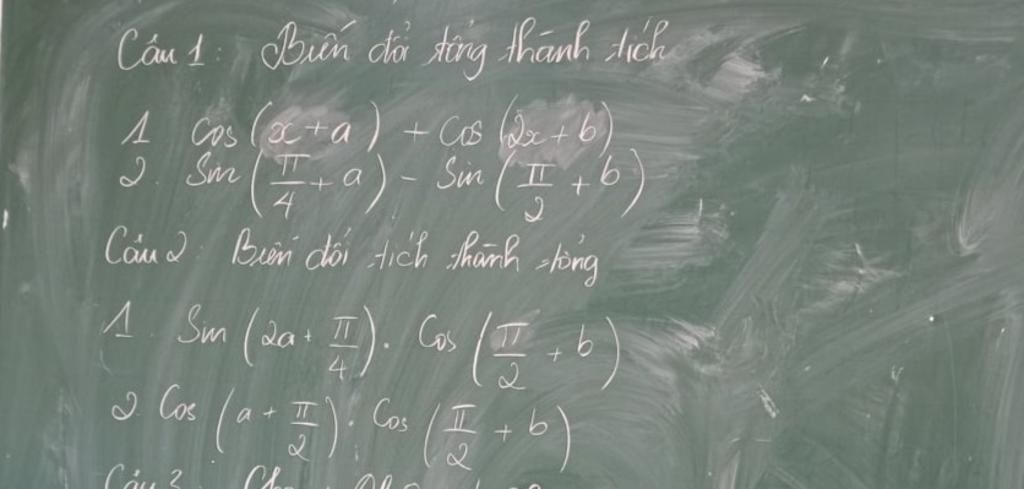 Câu 1: Biến đổi tổng thành tích
1 Cos (x+a) + Cos (2x+b)
2. Sin (π/4 + a) - Sin (π/2 + b)
Câu 2: Biến đổi tích thành tổng
1. Sin (2a + π/4). Cos (π/2 + b)
2. Cos (a + π/2). Cos (π/2 + b)
Câu 3